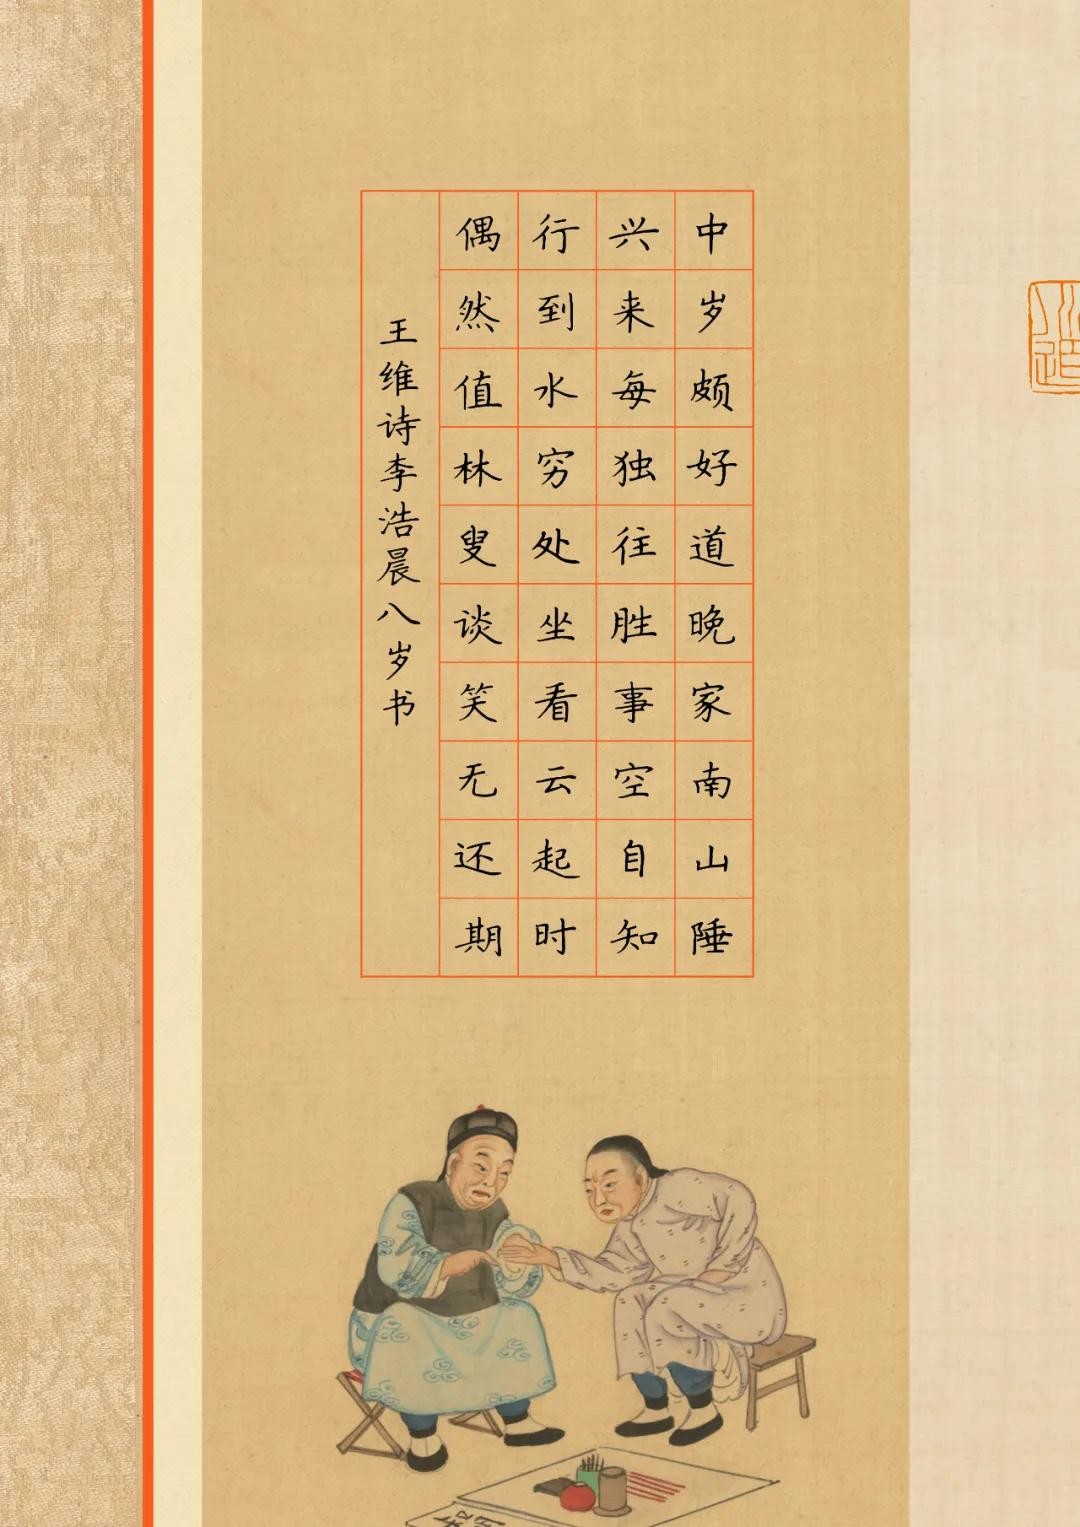 中岁颇好道晚家南山陲
兴来每独往胜事空自知
行到水穷处坐看云起时
偶然值林叟谈笑无还期
王维诗李浩晨八岁书